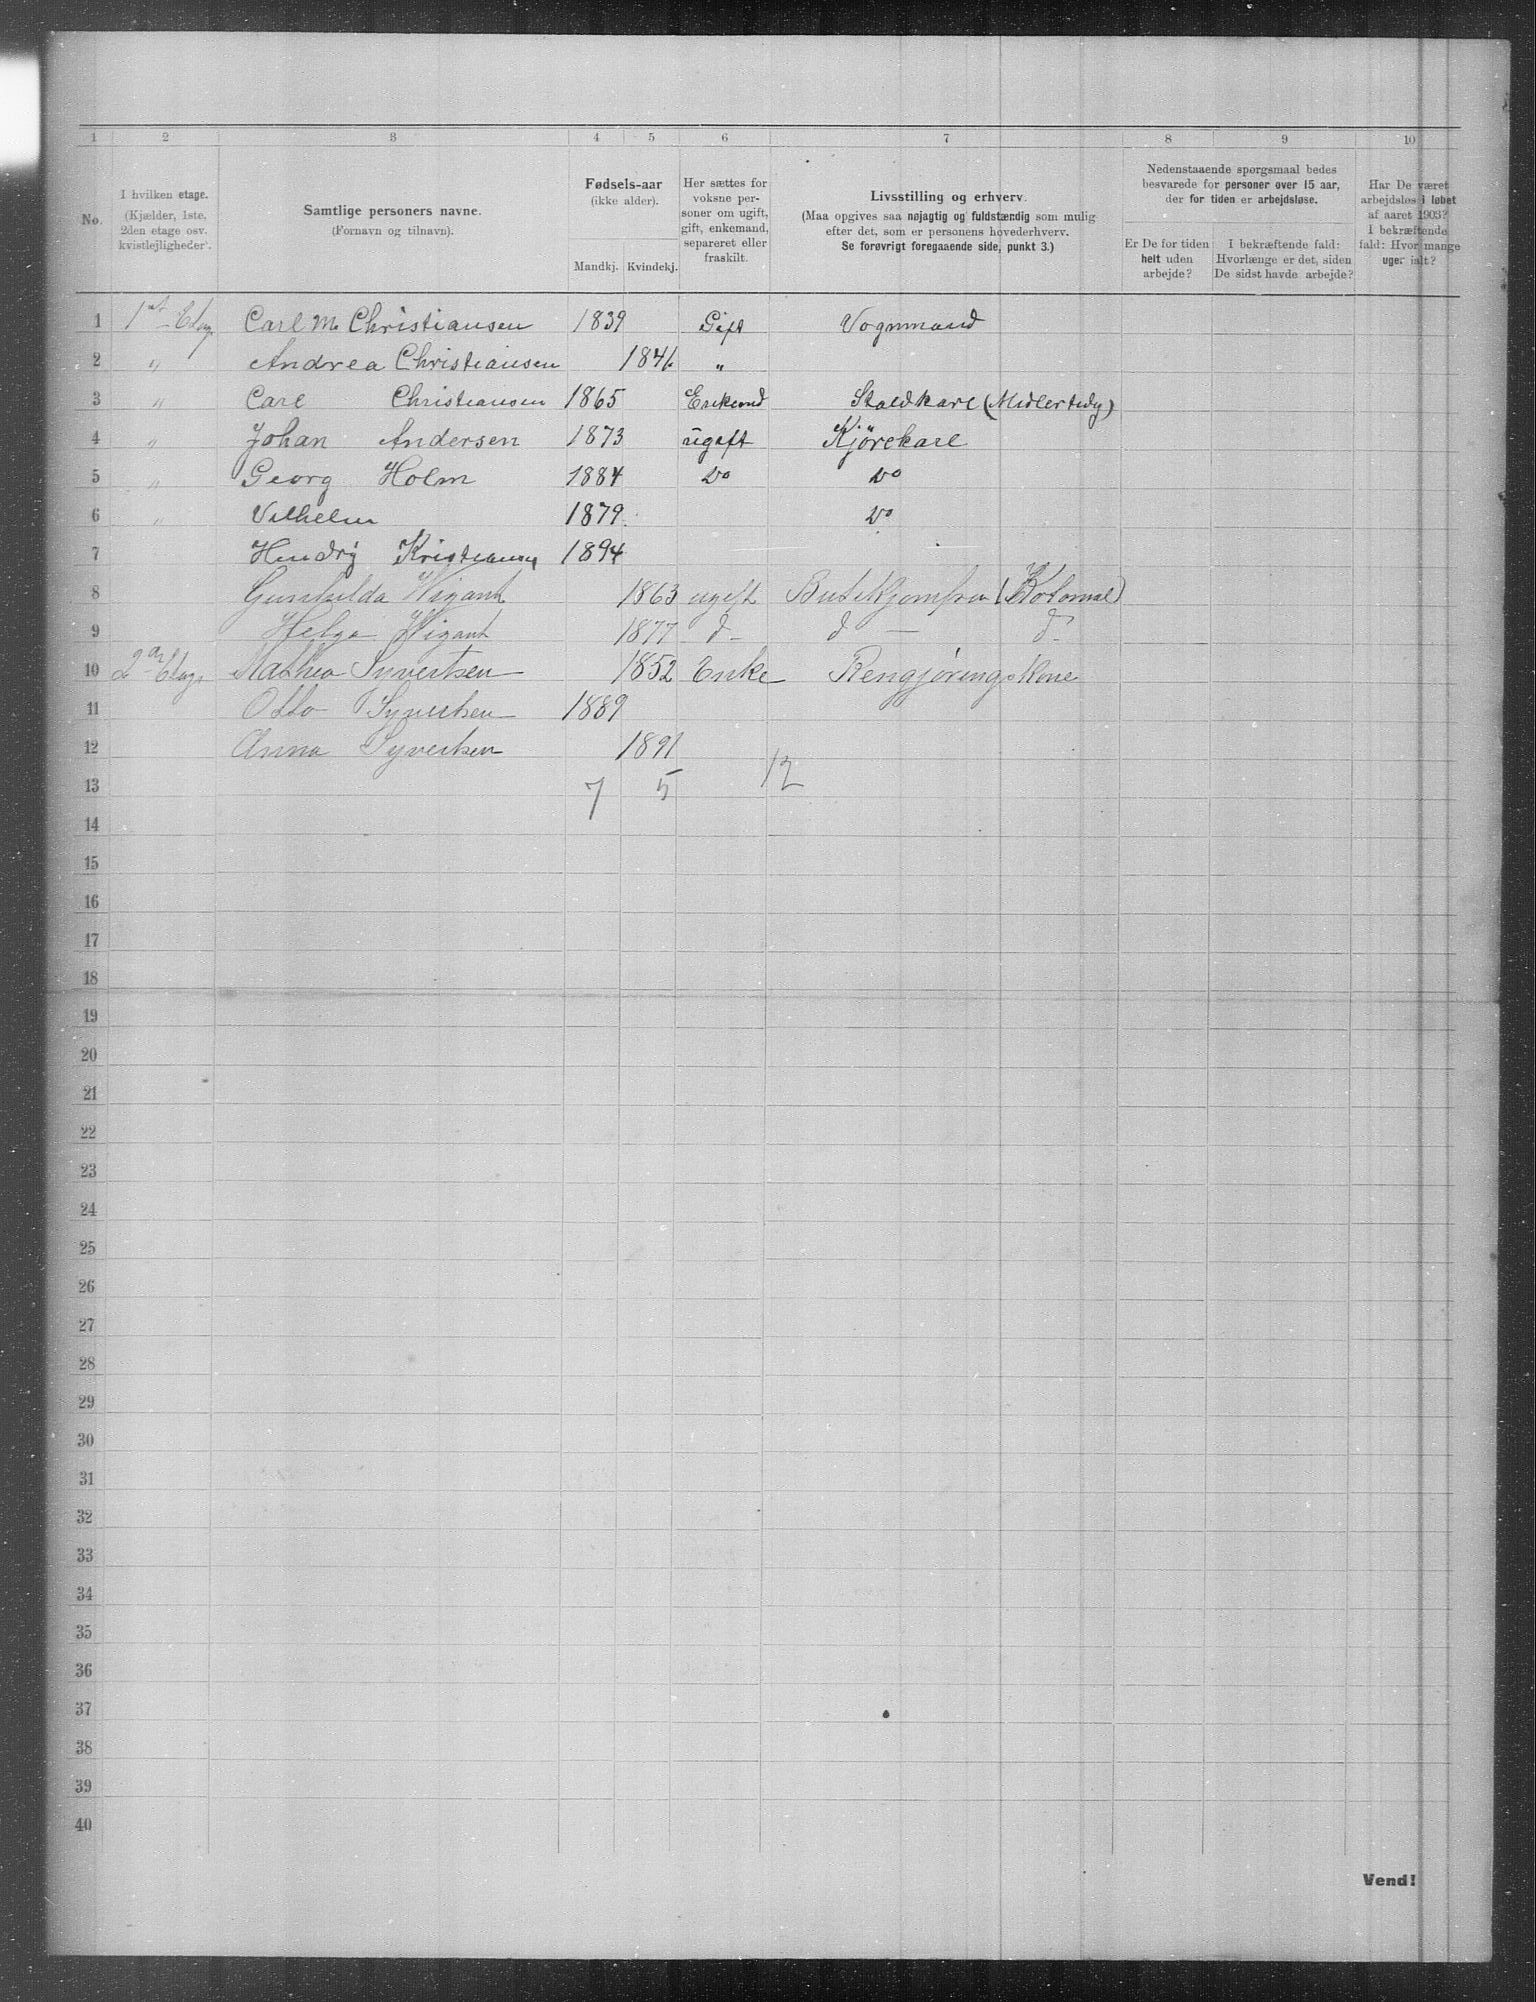 1 2 3 4 5 6 7 8 9 10
No.
I hvilken etage.
(Kjælder, 1ste,
2den etage osv.
kvistlejligheder).
Samtlige personers navne.
(Fornavn og tilnavn).
Fødsels-aar
(ikke alder).
Mandkj. Kvindekj.
Her sættes for
voksne per-
soner om ugift,
gift, enkemand,
separeret eller
fraskilt.
Livsstilling og erhverv.
(Maa opgives saa nøjagtig og fuldstændig som mulig
efter det, som er personens hovederhverv.
Se forøvrigt foregaaende side, punkt 3.)
Nedenstaaende spørgsmaal bedes
besvarede for personer over 15 aar,
der for tiden er arbejdsløse.
Er De for tiden
helt uden
arbejde?
I bekræftende fald:
Hvorlænge er det, siden
De sidst havde arbejde?
Har De været
arbejdsløs i løbet
af aaret 1903?
I bekræftende
fald: Hvor mange
uger ialt?
1 1st Etag. Carl M. Christiansen 1839 Gift Vognmand
2 " Andrea Christiansen 1846 "
3 " Carl Christiansen 1865 Enkemd Staldkarl (Midlertidg)
4 " Johan Andersen 1873 ugift Kjørekarl
5 " Georg Holm 1884 Do Do
6 " Vilhelm 1879 Do
7 Hendrÿ Kristiansen 1894
8 Gunhilda Wigant 1863 ugift Butikkjomfru (Kolonial)
9 Helga Wigant 1877 d- d — d-
10 2ar Etag. Mathea Syvertsen 1852 Enke Rengjøringskone
11 Otto Syvertsen 1889
12 Anna Syvertsen 1891
13 7 5 12
14
15
16
17
18
19
20
21
22
23
24
25
26
27
28
29
30
31
32
33
34
35
36
37
38
39
40
Vend!